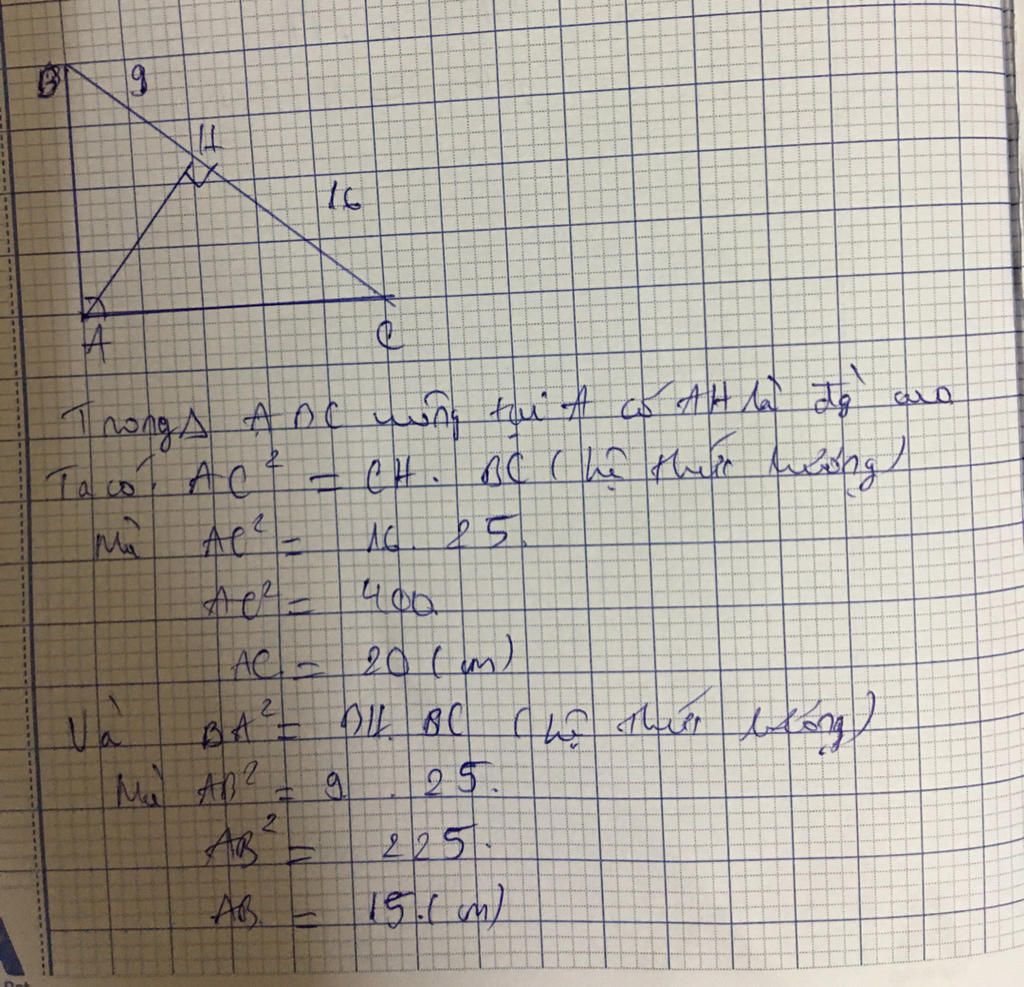 B 9
H
16
A C
Trong Δ ABC vuông tại A có AH là đg cao
Ta có: AC² = CH. BC (hệ thức lượng)
Mà AC² = 16. 25.
AC² = 400
AC = 20 (cm)
Và BA² = BH. BC (hệ thức lượng)
Mà AB² = 9 . 25.
AB² = 225.
AB = 15.(cm)